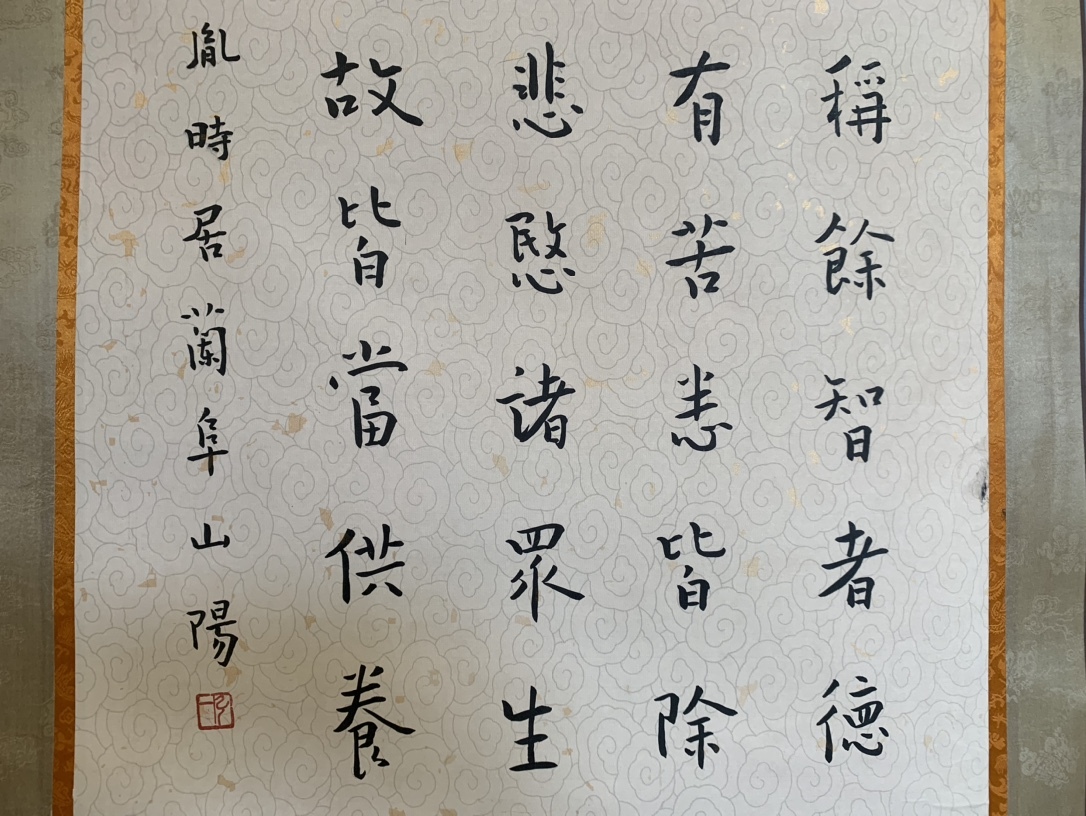 稱餘智者德
有苦悉皆除
悲愍諸眾生
故皆當供養
胤時居蘭阜山陽